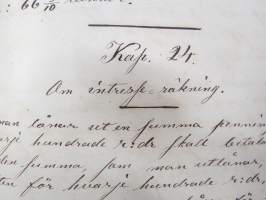 : 66 9/10
Kap. 24.
Om intresse-räkning.
man lånar ut en summa pennin
arje hundrade r:dr skall betala
den summa som man utlånar,
ten för hvarje hundrade r:dr,